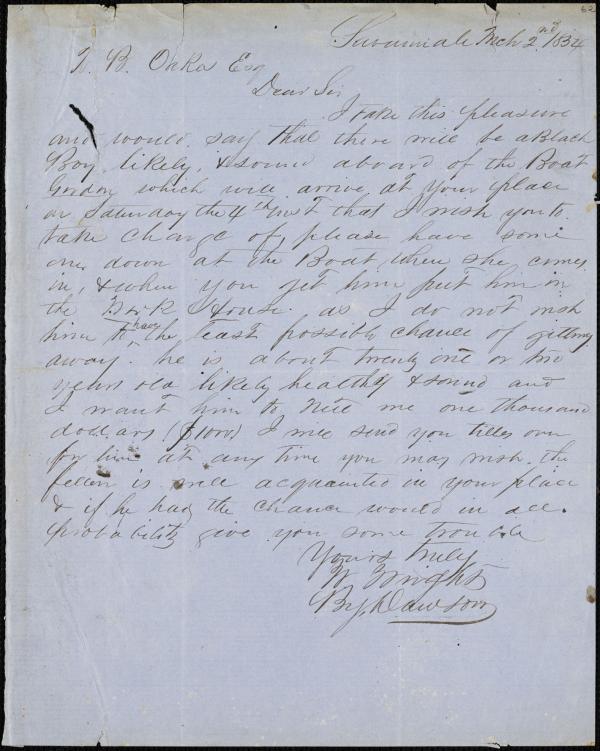 62
Savannah Mch 2nd 1854
Z. B. Oakes Esq
Dear Sir
I take this pleasure
and would say that there will be a Black
Boy likely, & sound aboard of the Boat
Gordon which will arrive at your place
on Saturday the 4th inst that I wish you to
take charge of, please have some
one down at the Boat when she comes
in, & when you get him put him in
the Brick House. as I do not wish
him to have the least possible chance of getting
away. he is about twenty one or two
years old likely healthy & sound and
I want him to nett me one thousand
dollars ($1000) I will send you titles over
for him at any time you may wish. the
fellow is well acquainted in your place
& if he had the chance would in all
probability give you some trouble
Yours truly
W Wright
By, Dawson